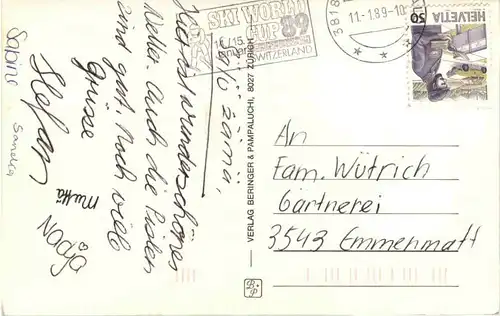 SKI WORLD
CUP 89
14/15
Januar
SWITZERLAND
3818
11.-1.89-10
HELVETIA
50
Hoi zäma,
Hier ist wunderschönes
Wetter. Auch die Pisten
sind gut. Noch viele
Grüsse
Stefan
Sabine
Sandra
VERLAG BERINGER & PAMPALUCHI, 8027 ZÜRICH
An
Fam. Wütrich
Gärtnerei
3543 Emmenmatt
B+P